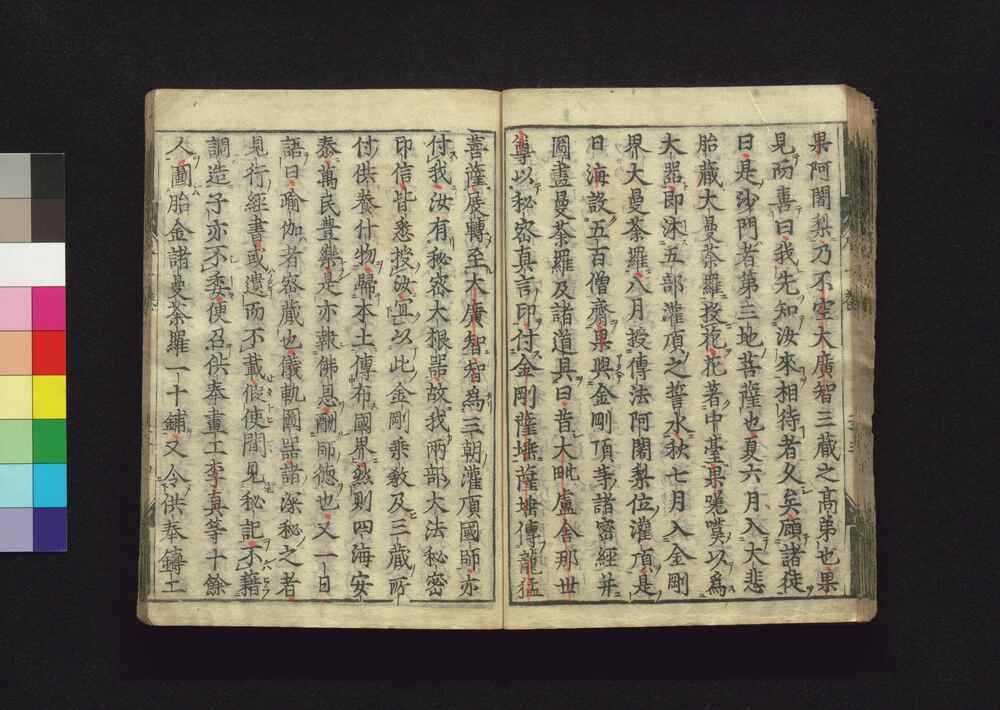 果阿闍梨乃不空大廣智三藏之高弟也果
見而善曰我先知汝來相待者久矣顧諸徒
曰是沙門者第三地菩薩也夏六月入大悲
胎藏大曼荼羅投花花著中臺果嘆以爲
大器即沐五部灌頂之誓水秋七月入金剛
界大曼荼羅八月授傳法阿闍梨位灌頂是
日海設五百僧齋果與金剛頂等諸密經并
圖畫曼荼羅及諸道具曰昔大毗盧舍那世
尊以秘密真言印付金剛薩埵薩埵傳龍猛
菩薩展轉至大廣智智爲三朝灌頂國師亦
付我汝有秘密大根器故我兩部大法秘密
印信皆悉授汝宜以此金剛乘教及三藏所
付供養什物歸本土傳布國界然則四海安
泰萬民豊樂是亦報佛恩酬師德也又一日
語曰瑜伽者密藏也儀軌圖器諸深秘之者
見行經書或遺而不載假使聞見秘記不藉
調造子亦不委便召供奉畫工李真等十餘
人圖胎金諸曼荼羅一十鋪又令供奉鑄工